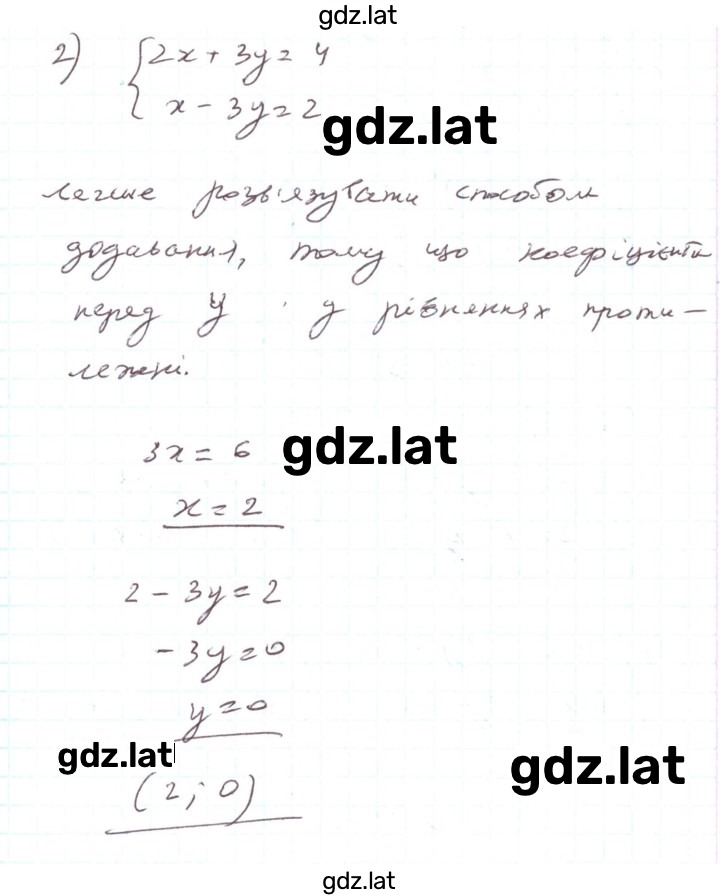 gdz.lat
2) { 2x + 3y = 4
x - 3y = 2
gdz.lat
легше розв'язувати способом
додавання, тому що коефіцієнти
перед y у рівненнях проти-
лежні.
3x = 6 gdz.lat
x = 2
2 - 3y = 2
-3y = 0
y = 0
gdz.lat
gdz.lat
(2; 0)
gdz.lat